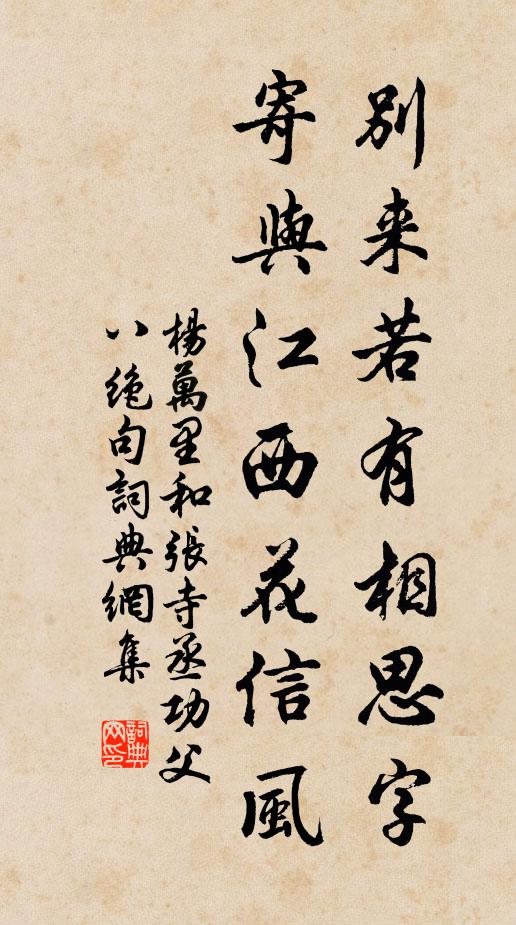 別来若有相思字
寄與江西花信風
楊萬里和張寺丞功父
八絶句詞典網集
詞典网印